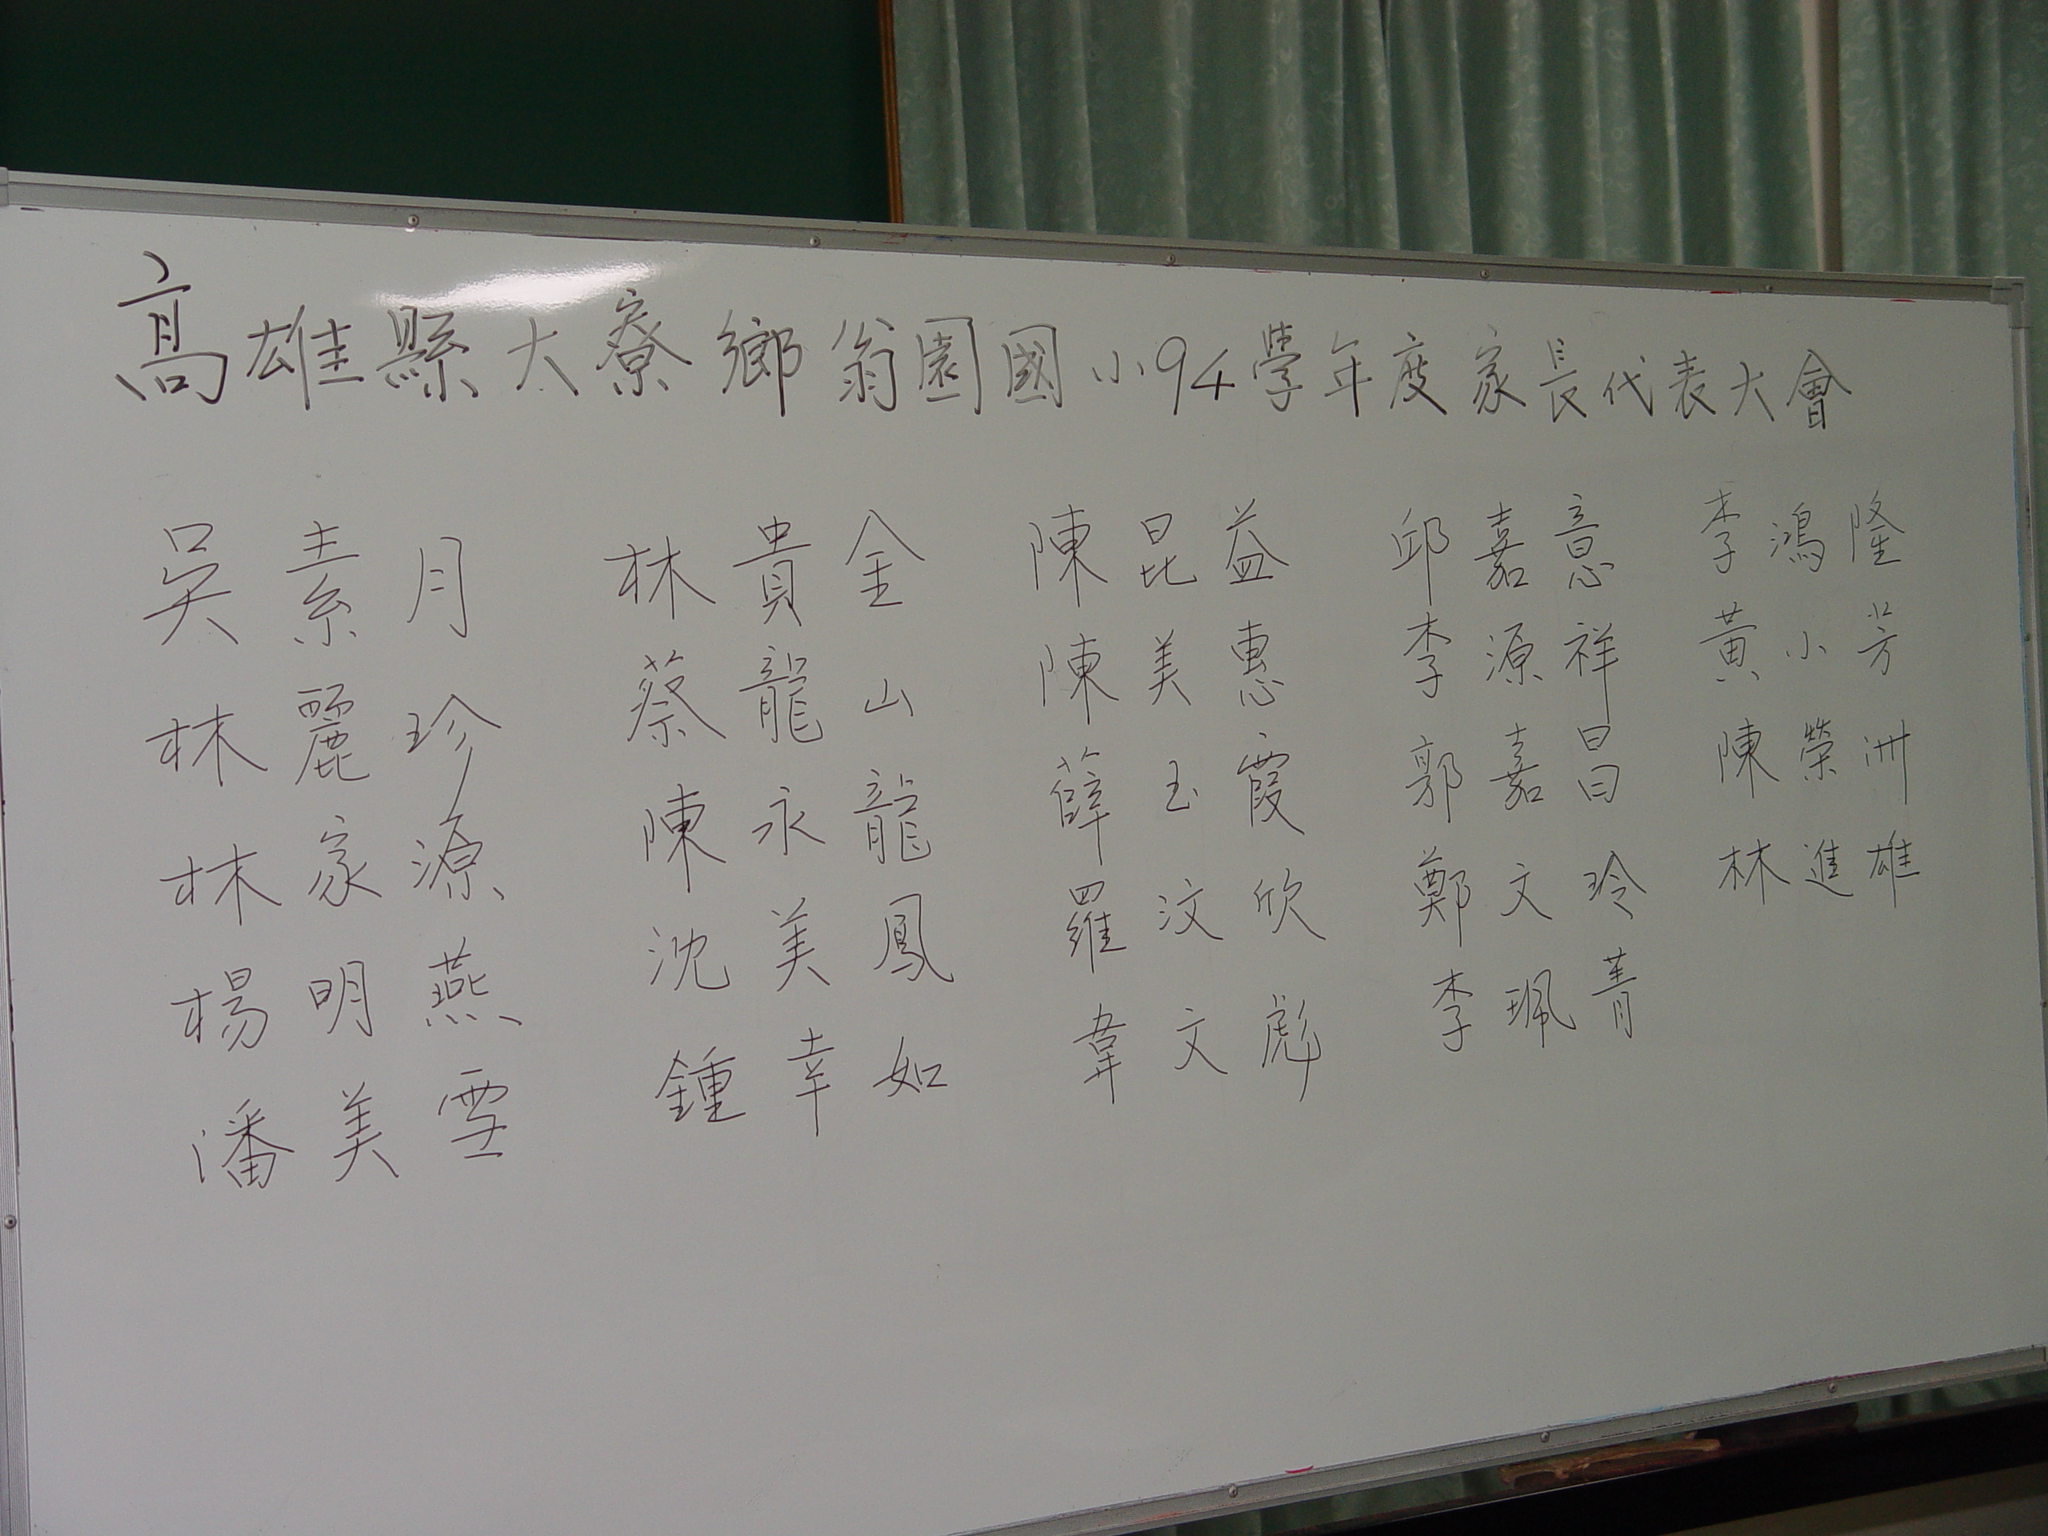 高雄縣大寮鄉翁園國小94學年度家長代表大會
吳素月 林貴金 陳昆益 邱嘉意 李鴻隆
林麗珍 蔡龍山 陳美惠 李源祥 黃小芳
林家源 陳永龍 薛玉霞 郭嘉昌 陳榮洲
林進雄
楊明燕 沈美鳳 羅汶欣 鄭文玲
潘美雪 鍾幸如 韋文彪 李珮菁